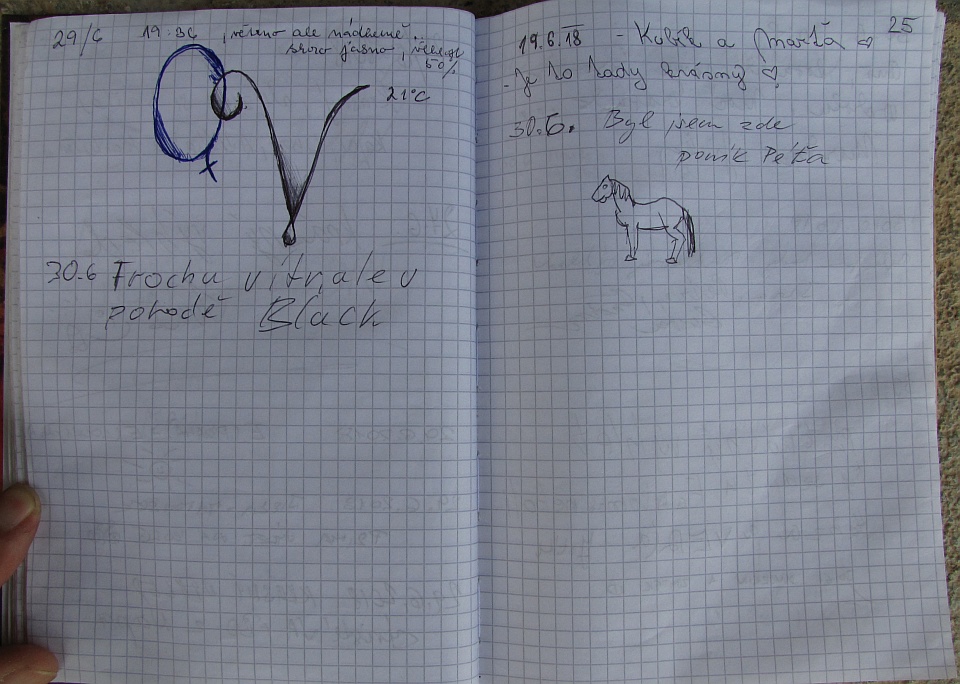 29/6 19:36, větrno ale nádherně.
skoro jasno,
50%
21°C
30.6 Trochu vítr, ale v
pohodě Black
25
19.6.18 - Kubík a Marťa ♡
- Je to tady krásný ♡
30.6. Byl jsem zde
poník Péťa